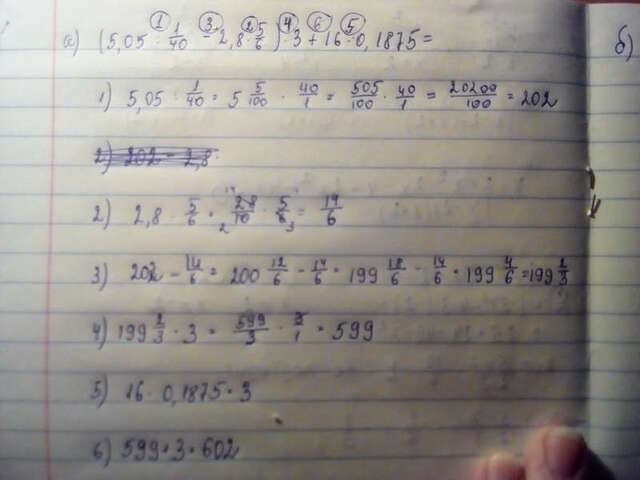 ① ③ ② ④ ⑥ ⑤
а) (5,05 : 1/40 - 2,8 · 5/6) · 3 + 16 · 0,1875 =
б)
1) 5,05 : 1/40 = 5 5/100 · 40/1 = 505/100 · 40/1 = 20200/100 = 202
2) 202 - 2,8
2) 2,8 · 5/6 = 28/10 · 5/6 = 14/6
3) 202 - 14/6 = 200 12/6 - 14/6 = 199 18/6 - 14/6 = 199 4/6 = 199 2/3
4) 199 2/3 · 3 = 599/3 · 3/1 = 599
5) 16 · 0,1875 = 3
6) 599 + 3 = 602